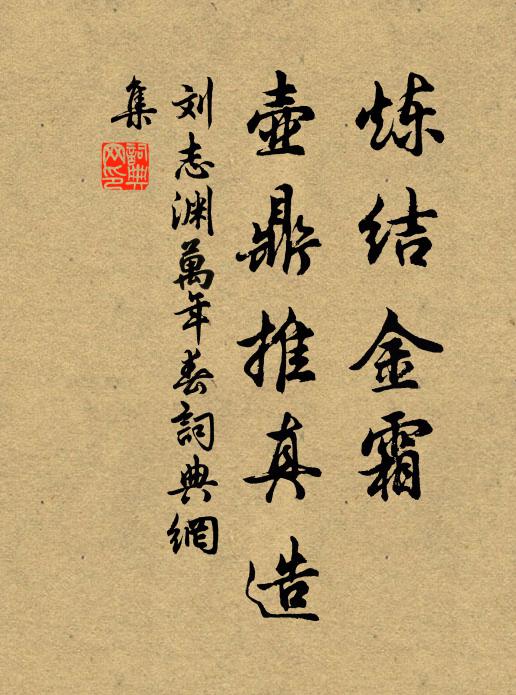 炼结金霜
壶鼎推真造
刘志渊萬年春詞典網
集
詞典
网印